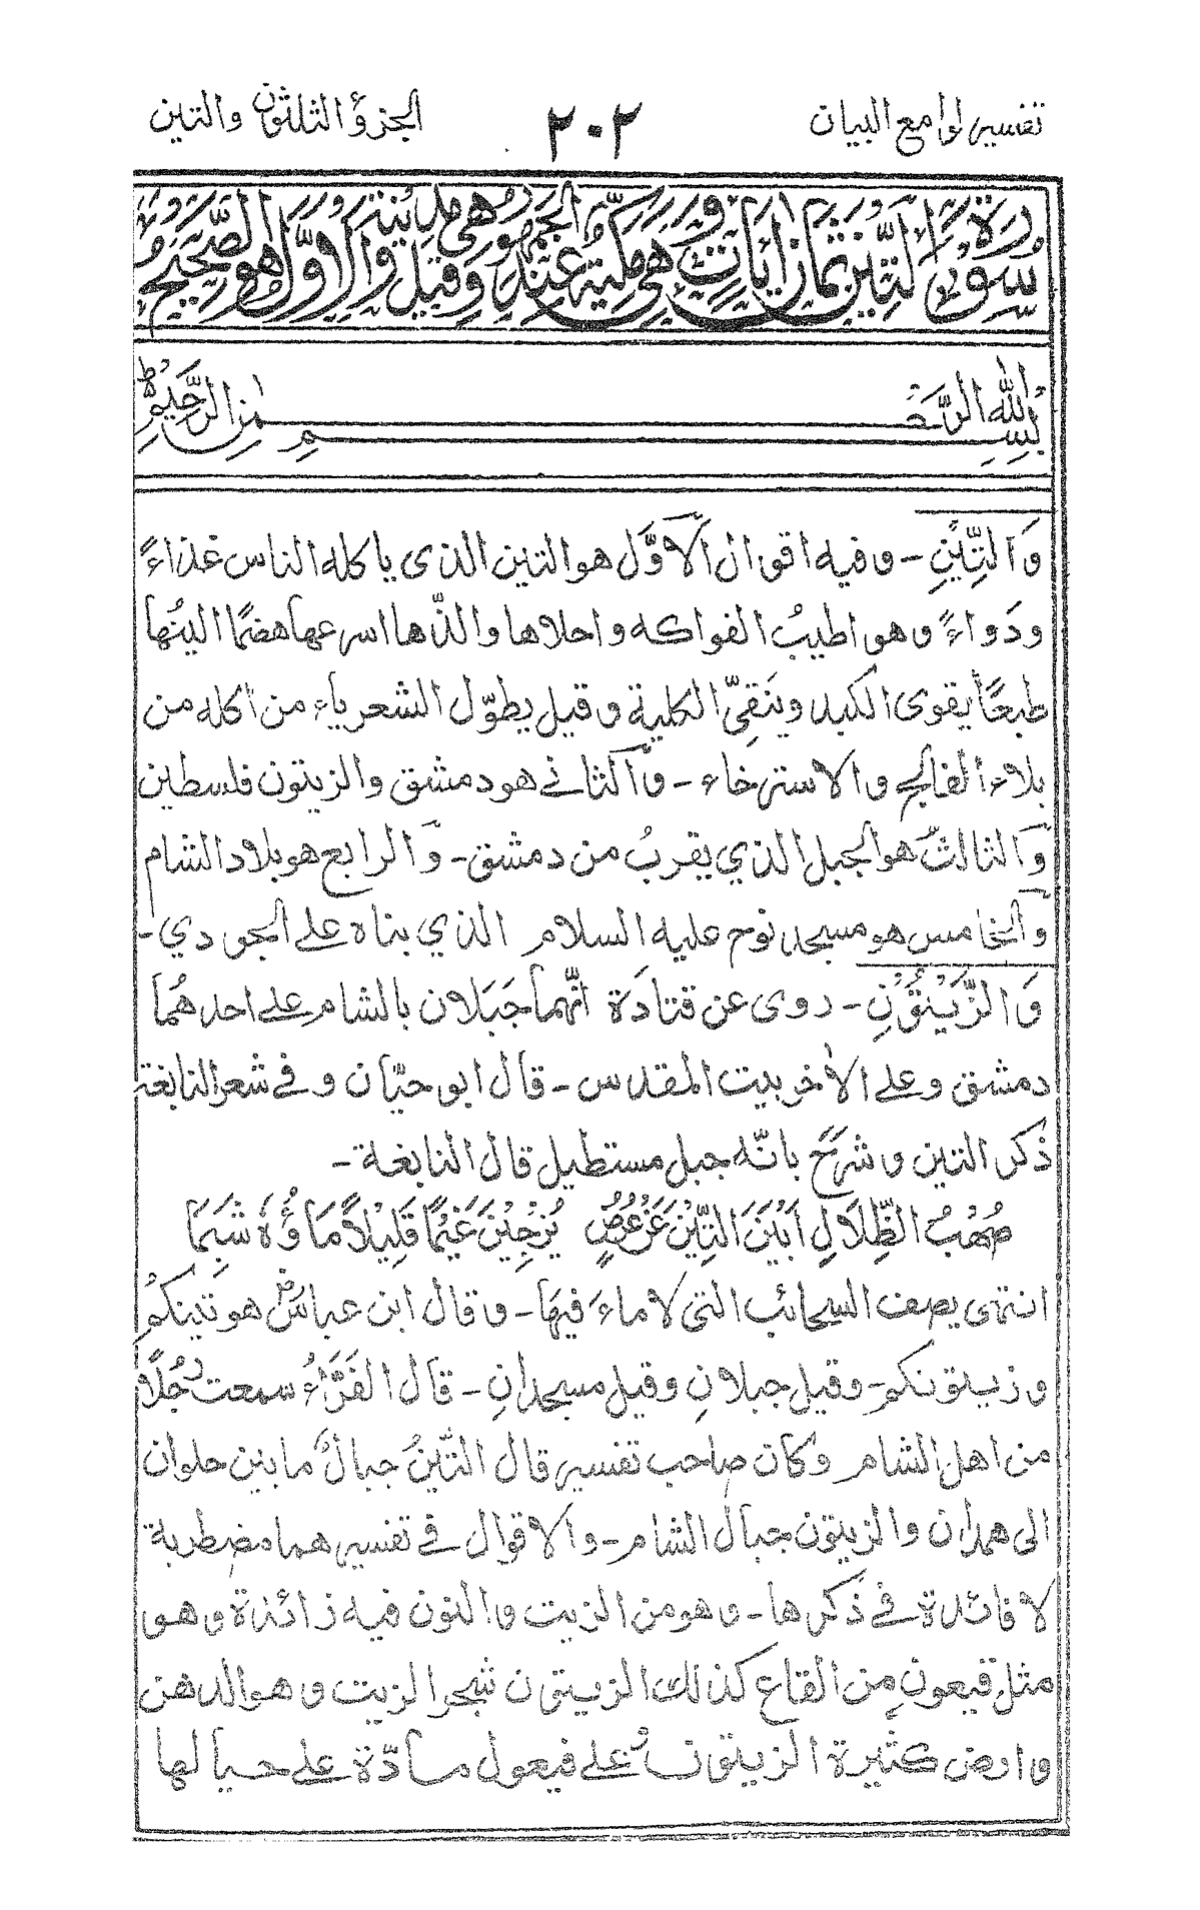 تفسير لوامع البيان ٢٠٢ الجزؤ الثلثون والتين
سورة التين ثمان ايات وهي مكية عند الجمهور وقيل هي مدينة والاول هو الصحيح
بسم الله الرحمن الرحيم
وَالتِّيْنِ - وفيه اقوال الاوّل هو التين الذى ياكله الناس غذاءً
ودَواءً وهو اطيبُ الفواكه واحلاها والذّها اسرعها هضمًا الينُها
طبعًا يقوى الكبد وينَقِىّ الكلية وقيل يطوّل الشعر ياء من اكله من
بلاء الفالج والاسترخاء - والثانے هو دمشق والزيتون فلسطين
والثالث هو الجبل الذي يقربُ من دمشق - والرابع هو بلاد الشام
والخامس هو مسجد نوح عليه السلام الذي بناه علے الجودي -
وَالزَّيْتُوْنِ - روى عن قتادَة انّهما جَبَلان بالشام علے احدهُما
دمشق وعلے الاٰخر بيت المقدس - قال ابو حيّان وفے شعر النابغة
ذكر التين وشرَحَ بانّه جبل مستطيل قال النابغة -
صُهْبُ الظِّلَالِ اَتَيْنَ التِّيْنَ عَنْ عُرُضٍ يُزْجِيْنَ غَيْمًا قَلِيْلًا مَاؤُهٗ شَبِمَا
انتهى يصف السحائب التى لا ماءَ فيهَا - وقال ابن عباسؓ هو تينكمُ
وزيتونكم - وقيل جبلانِ وقيل مسجدانِ - قال الفَرَّاءُ سمعت رجُلًا
من اهل الشام وكان صاحب تفسير قال التّينُ جبالٌ ما بين حلوان
الى همدان والزيتون جبال الشام - والاقوال فے تفسيرهما مضطربة
لا فائدة فے ذكرها - وهو من الزيت والنون فيه زائدة وهو
مثل قيعون من القاع كذلك الزيتون شجر الزيت وهو الدهن
وارض كثيرة الزيتون علے فيعول مادّة علے حيالها